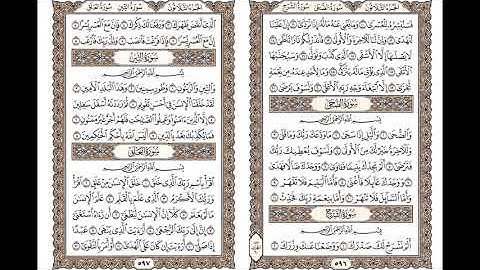 الجزء الثلاثون سورة الليل سورة الضحى سورة الشرح
فَسَنُيَسِّرُهُۥ لِلْعُسْرَىٰ ١٠ وَمَا يُغْنِى عَنْهُ مَالُهُۥٓ إِذَا تَرَدَّىٰٓ ١١ إِنَّ عَلَيْنَا
لَلْهُدَىٰ ١٢ وَإِنَّ لَنَا لَلْـَٔاخِرَةَ وَٱلْأُولَىٰ ١٣ فَأَنذَرْتُكُمْ نَارًا تَلَظَّىٰ ١٤
لَا يَصْلَىٰهَآ إِلَّا ٱلْأَشْقَى ١٥ ٱلَّذِى كَذَّبَ وَتَوَلَّىٰ ١٦ وَسَيُجَنَّبُهَا
ٱلْأَتْقَى ١٧ ٱلَّذِى يُؤْتِى مَالَهُۥ يَتَزَكَّىٰ ١٨ وَمَا لِأَحَدٍ عِندَهُۥ مِن نِّعْمَةٍ تُجْزَىٰٓ ١٩
إِلَّا ٱبْتِغَآءَ وَجْهِ رَبِّهِ ٱلْأَعْلَىٰ ٢٠ وَلَسَوْفَ يَرْضَىٰ ٢١
سُورَةُ الضُّحَىٰ
بِسْمِ ٱللَّهِ ٱلرَّحْمَٰنِ ٱلرَّحِيمِ
وَٱلضُّحَىٰ ١ وَٱلَّيْلِ إِذَا سَجَىٰ ٢ مَا وَدَّعَكَ رَبُّكَ وَمَا قَلَىٰ ٣
وَلَلْـَٔاخِرَةُ خَيْرٌ لَّكَ مِنَ ٱلْأُولَىٰ ٤ وَلَسَوْفَ يُعْطِيكَ رَبُّكَ
فَتَرْضَىٰٓ ٥ أَلَمْ يَجِدْكَ يَتِيمًا فَـَٔاوَىٰ ٦ وَوَجَدَكَ ضَآلًّا فَهَدَىٰ ٧
وَوَجَدَكَ عَآئِلًا فَأَغْنَىٰ ٨ فَأَمَّا ٱلْيَتِيمَ فَلَا تَقْهَرْ ٩
وَأَمَّا ٱلسَّآئِلَ فَلَا تَنْهَرْ ١٠ وَأَمَّا بِنِعْمَةِ رَبِّكَ فَحَدِّثْ ١١
سُورَةُ الشَّرْحِ
بِسْمِ ٱللَّهِ ٱلرَّحْمَٰنِ ٱلرَّحِيمِ
أَلَمْ نَشْرَحْ لَكَ صَدْرَكَ ١ وَوَضَعْنَا عَنكَ وِزْرَكَ ٢
٥٩٦
الجزء الثلاثون سورة التين سورة العلق
ٱلَّذِىٓ أَنقَضَ ظَهْرَكَ ٣ وَرَفَعْنَا لَكَ ذِكْرَكَ ٤ فَإِنَّ مَعَ ٱلْعُسْرِ يُسْرًا ٥
إِنَّ مَعَ ٱلْعُسْرِ يُسْرًا ٦ فَإِذَا فَرَغْتَ فَٱنصَبْ ٧ وَإِلَىٰ رَبِّكَ فَٱرْغَب ٨
سُورَةُ التِّينِ
بِسْمِ ٱللَّهِ ٱلرَّحْمَٰنِ ٱلرَّحِيمِ
وَٱلتِّينِ وَٱلزَّيْتُونِ ١ وَطُورِ سِينِينَ ٢ وَهَٰذَا ٱلْبَلَدِ ٱلْأَمِينِ ٣
لَقَدْ خَلَقْنَا ٱلْإِنسَٰنَ فِىٓ أَحْسَنِ تَقْوِيمٍ ٤ ثُمَّ رَدَدْنَٰهُ أَسْفَلَ سَٰفِلِينَ ٥
إِلَّا ٱلَّذِينَ ءَامَنُوا۟ وَعَمِلُوا۟ ٱلصَّٰلِحَٰتِ فَلَهُمْ أَجْرٌ غَيْرُ مَمْنُونٍ ٦
فَمَا يُكَذِّبُكَ بَعْدُ بِٱلدِّينِ ٧ أَلَيْسَ ٱللَّهُ بِأَحْكَمِ ٱلْحَٰكِمِينَ ٨
سُورَةُ العَلَقِ
بِسْمِ ٱللَّهِ ٱلرَّحْمَٰنِ ٱلرَّحِيمِ
ٱقْرَأْ بِٱسْمِ رَبِّكَ ٱلَّذِى خَلَقَ ١ خَلَقَ ٱلْإِنسَٰنَ مِنْ عَلَقٍ ٢ ٱقْرَأْ
وَرَبُّكَ ٱلْأَكْرَمُ ٣ ٱلَّذِى عَلَّمَ بِٱلْقَلَمِ ٤ عَلَّمَ ٱلْإِنسَٰنَ
مَا لَمْ يَعْلَمْ ٥ كَلَّآ إِنَّ ٱلْإِنسَٰنَ لَيَطْغَىٰٓ ٦ أَن رَّءَاهُ ٱسْتَغْنَىٰٓ ٧
إِنَّ إِلَىٰ رَبِّكَ ٱلرُّجْعَىٰٓ ٨ أَرَءَيْتَ ٱلَّذِى يَنْهَىٰ ٩ عَبْدًا
إِذَا صَلَّىٰٓ ١٠ أَرَءَيْتَ إِن كَانَ عَلَى ٱلْهُدَىٰٓ ١١ أَوْ أَمَرَ بِٱلتَّقْوَىٰٓ ١٢
٥٩٧